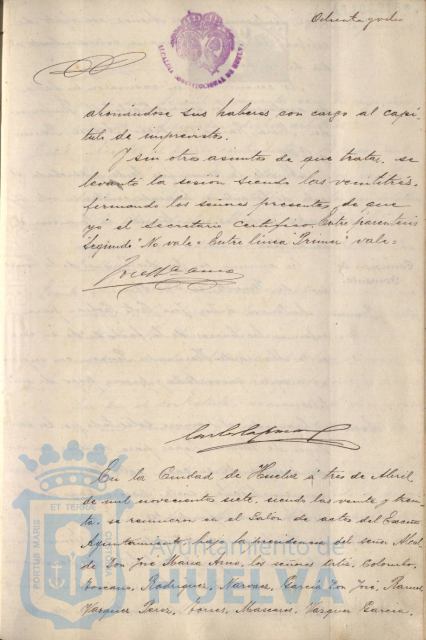 Ochenta y ocho
ALCALDIA CONSTITUCIONAL DE HUELVA
abonándose sus haberes con cargo al capí-
tulo de imprevistos.
Y sin otros asuntos de que tratar, se
levantó la sesión siendo las veintitres
firmando los señores presentes, de que
yó el Secretario certifico, Entre parentesis
"Segundo" No vale = Entre línea "Primer" vale =
En la Ciudad de Huelva á tres de Abril
de mil novecientos siete, siendo las veinte y trein-
ta, se reunieron en el Salón de actos del Excmo
Ayuntamiento, bajo la presidencia del señor Alcal-
de Don José María Amo, los señores Columbo,
Toscano, Rodriguez, Narvaez, García Don José, Ramos
Vazquez Perez, Torres, Mascaros, Vazquez García,
PORTUS MARIS ET TERRAE CUSTODIA
Ayuntamiento de
HUELVA